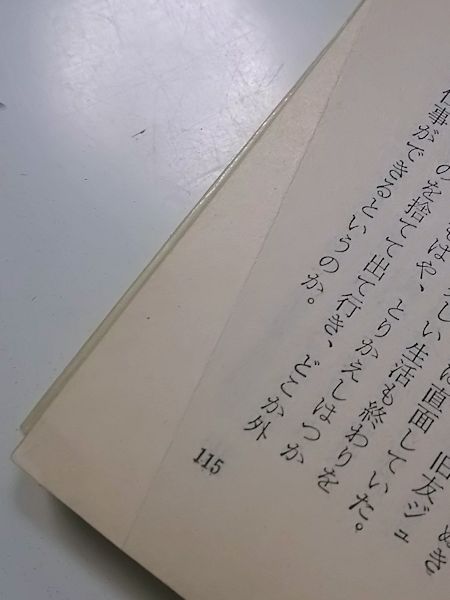 ぬき
旧友ジュ
直面していた。
しい生活も終わりを
もはや、とりかえしはつか
のを捨てて出て行き、どこか外
仕事ができるというのか。
115